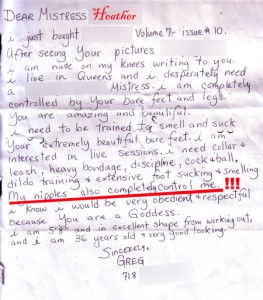 DEAR MISTRESS Heather
i just bought Volume 7- issue # 10.
After seeing Your pictures
i am nude on my knees writing to you.
i live in Queens and i desperately need
a Mistress. i am completely
controlled by Your bare feet and legs.
You are amazing & beautiful.
i need to be trained to smell and suck
Your extremely beautiful bare feet. i am
interested in live sessions. i need collar &
leash, heavy bondage, discipline, cock & ball,
dildo training & extensive foot sucking & smelling
My nipples also completely control me. !!!
i know i would be very obedient & respectful
because You are a Goddess.
i am 5'8" and in excellent shape from working out,
and i am 36 years old & very good looking.
Sincerely,
GREG
718